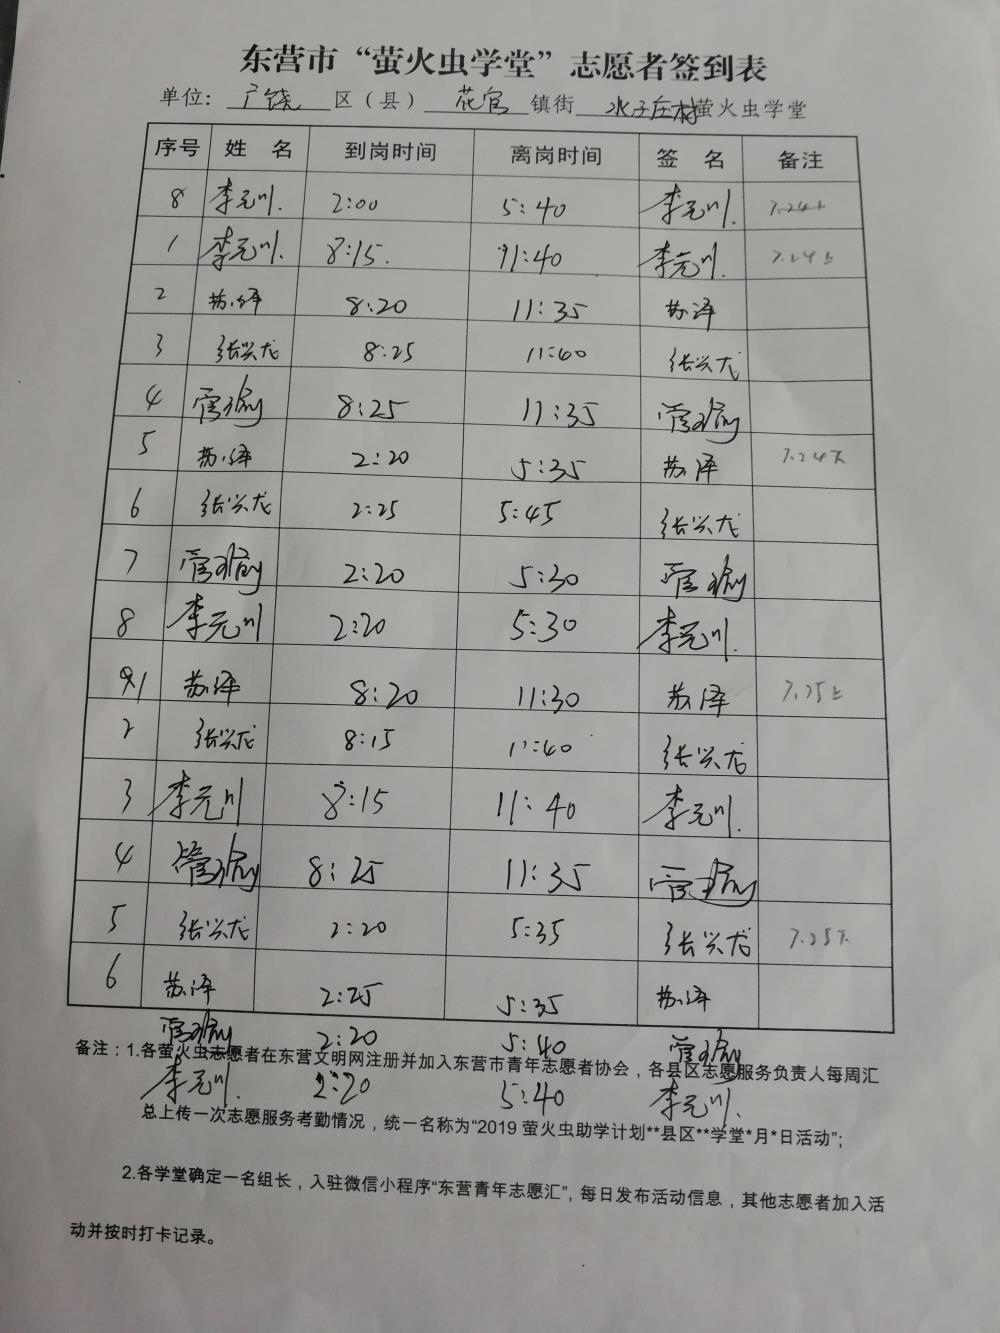 东营市“萤火虫学堂”志愿者签到表
单位: 广饶 区（县） 花官 镇街 水子庄村萤火虫学堂
序号 姓 名 到岗时间 离岗时间 签 名 备注
8 李元川. 2:00 5:40 李元川. 7.24上
1 李元川. 8:15. 11:40 李元川. 7.24上
2 苏泽 8:20 11:35 苏泽
3 张兴龙 8:25 11:40 张兴龙
4 管瑜 8:25 11:35 管瑜
5 苏泽 2:20 5:35 苏泽 7.24下
6 张兴龙 2:25 5:45 张兴龙
7 管瑜 2:20 5:30 管瑜
8 李元川 2:20 5:30 李元川.
1 苏泽 8:20 11:30 苏泽 7.25上
2 张兴龙 8:15 11:40 张兴龙
3 李元川 8:15 11:40 李元川.
4 管瑜 8:25 11:35 管瑜
5 张兴龙 2:20 5:35 张兴龙 7.25下
6 苏泽 2:25 5:35 苏泽
管瑜 2:20 5:40 管瑜
备注：1.各萤火虫志愿者在东营文明网注册并加入东营市青年志愿者协会，各县区志愿服务负责人每周汇
李元川. 2:20 5:40 李元川.
总上传一次志愿服务考勤情况，统一名称为“2019 萤火虫助学计划**县区**学堂*月*日活动”;
2.各学堂确定一名组长，入驻微信小程序“东营青年志愿汇”，每日发布活动信息，其他志愿者加入活
动并按时打卡记录。